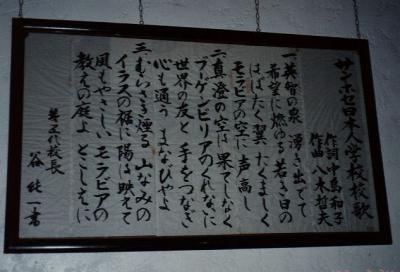 サンホセ日本人学校校歌
作詞 中島和子
作曲 八木哲夫
一、英智の泉 湧き出でて
希望に燃ゆる 若き日の
はばたく翼 たくましく
モラビアの空に 声高し
二、真澄の空は 果てしなく
ブーゲンビリアの くれないに
世界の友と 手をつなぎ
心も通う まなびやよ
三、むらさき煙る 山なみの
イラスの裾に 陽は映えて
風もやさしい モラビアの
教えの庭よ とこしえに
谷 純一書